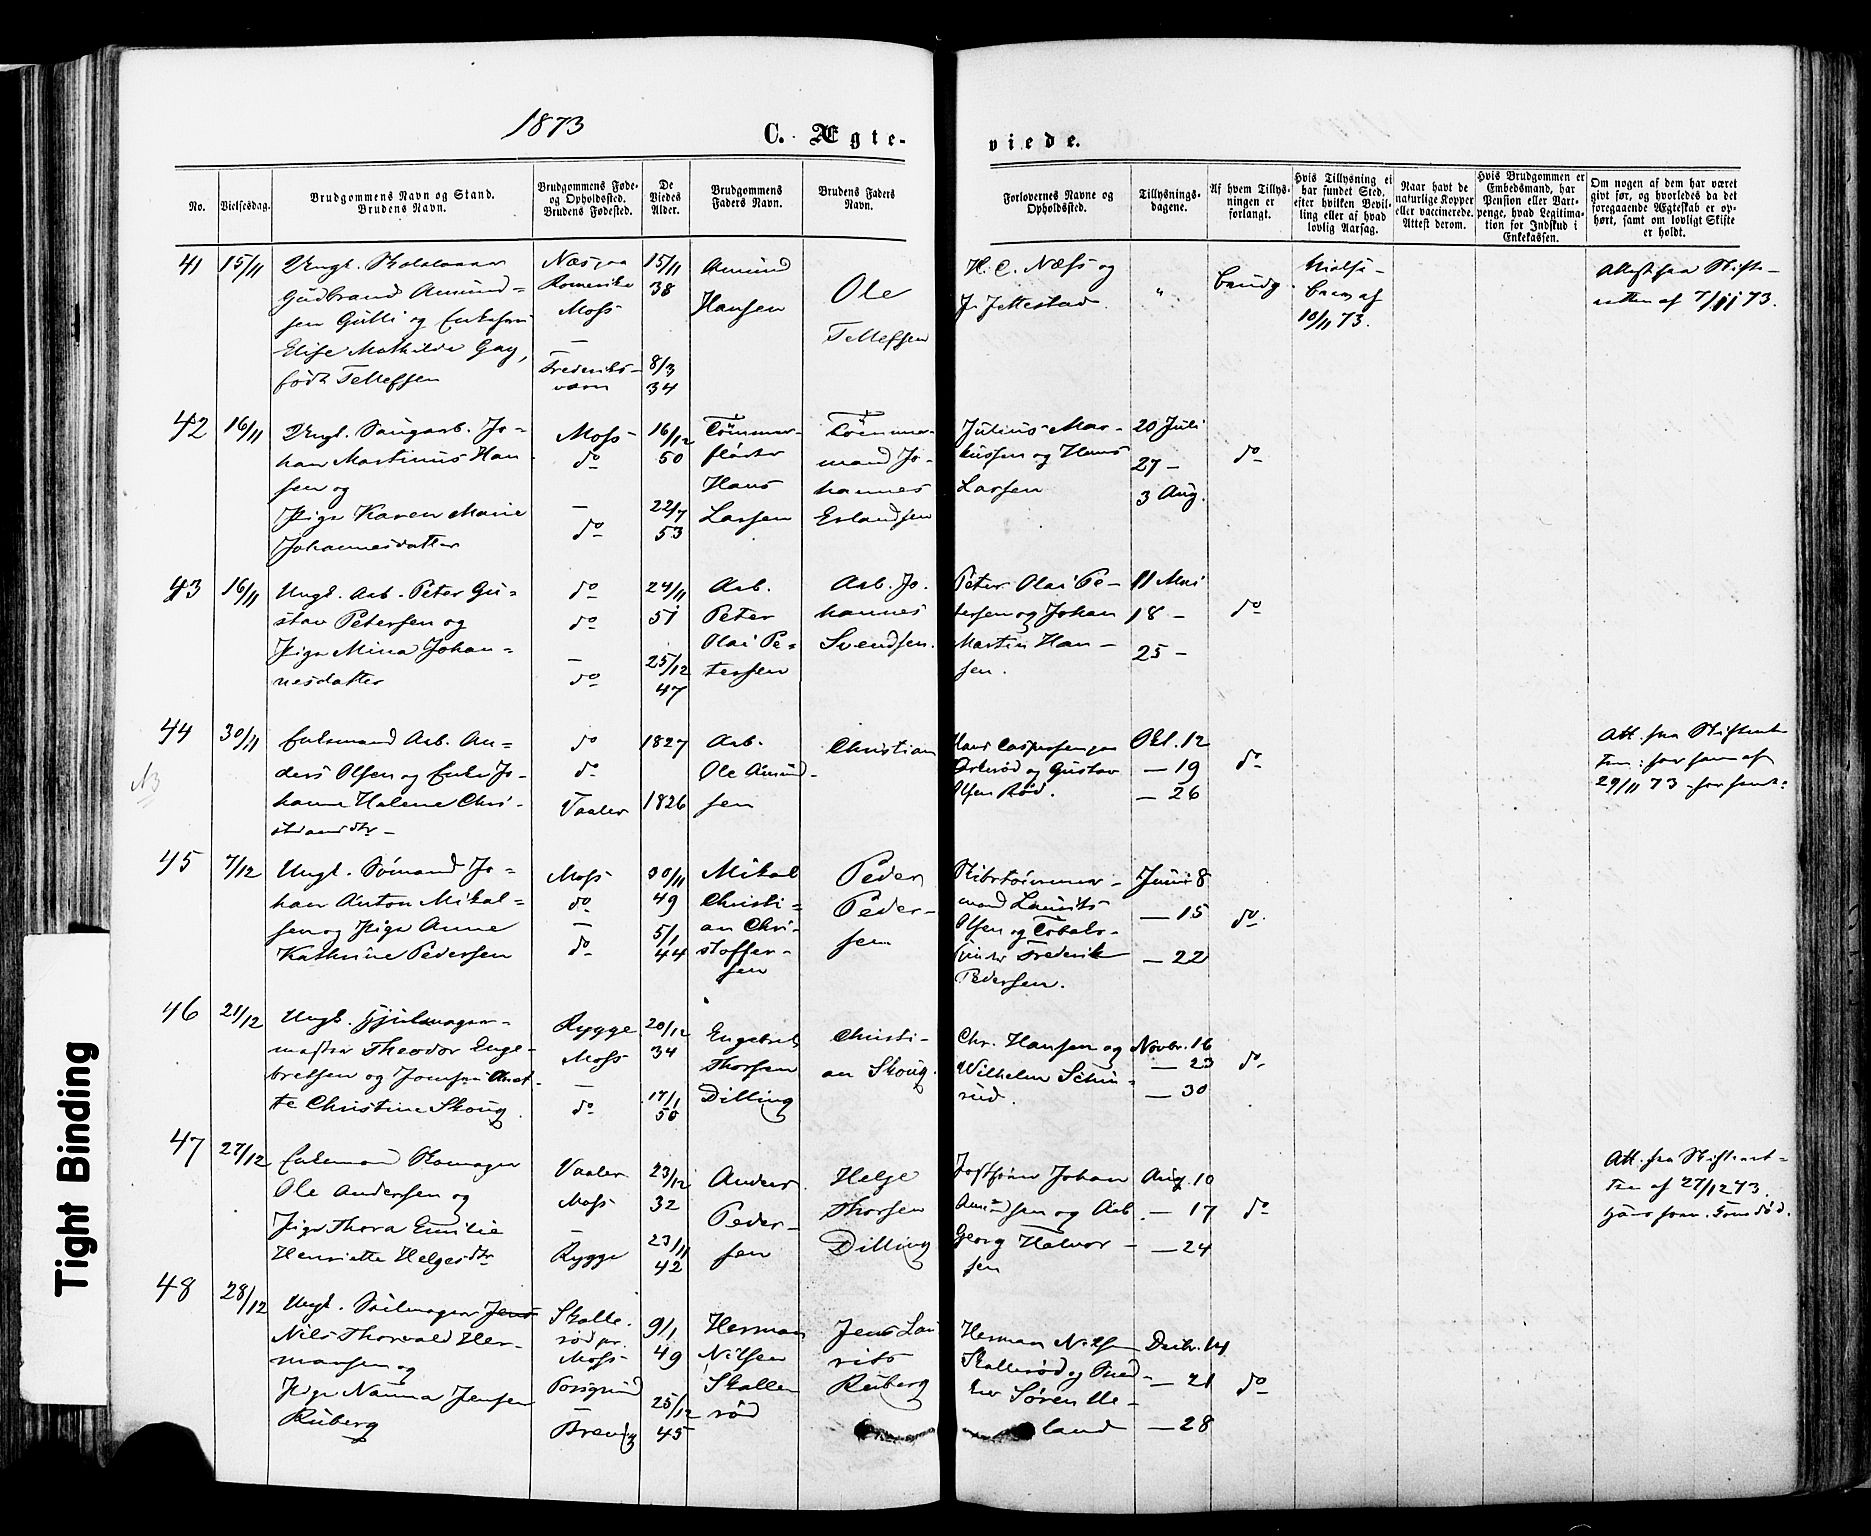 1873
C. Ægte-
viede.
No.
Vielsesdag.
Brudgommens Navn og Stand.
Brudens Navn.
Brudgommens Føde-
og Opholdssted.
Brudens Fødested.
De
Viedes
Alder.
Brudgommens
Faders Navn.
Brudens Faders
Navn.
Forlovernes Navne og
Opholdssted.
Tillysnings-
dagene.
Af hvem Tillys-
ningen er
forlangt.
Hvis Tillysning ei
har fundet Sted,
efter hvilken Bevil-
ling eller af hvad
lovlig Aarsag.
Naar havt de
naturlige Kopper
eller vaccinerede.
Attest derom.
Hvis Brudgommen er
Embedsmand, har
Pension eller Vart-
penge, hvad Legitima-
tion for Indskud i
Enkekassen.
Om nogen af dem har været
givt før, og hvorledes da det
foregaaende Ægteskab er op-
hørt, samt om lovligt Skifte
er holdt.
41
15/11
Ungk.
Gudbrand Amund-
sen Gulli og
Elise Mathilde Gay,
født Tellefsen
Næs paa
Romerike
Moss
—
Frederiks-
værn
15/11
38
8/3
34
Amund
Hansen
Ole
Tellefsen
H. C. Næss og
J. Jettestad
"
brudg
10/11 73.
Attest fra Skifte-
retten af 7/11 73.
42
16/11
Ungk. Saugarb. Jo-
han Martinus Han-
sen og
Pige Karen Marie
Johannesdatter
Moss
do
—
do
16/12
50
22/7
53
Tømmer-
fløder
Hans
Larsen
Tømmer-
mand Jo-
hannes
Erlandsen
Julius Mar-
kussen og Hans
Larsen
20 Juli
27 —
3 Aug.
do
43
16/11
Ungk. Arb. Peter Gu-
stav Petersen og
Pige Mina Johan-
nesdatter
do
do
—
do
24/11
51
25/12
47
Arb.
Peter
Olai Pe-
tersen
Arb. Jo-
hannes
Svendsen.
Peter Olai Pe-
tersen og Johan
Martin Han-
sen.
11 Mai
18 —
25 —
do
44
30/11
Enkemand Arb. An-
ders Olsen og Enke Jo-
hanne Helene Chri-
stiansdtr —
do
do
Vaaler
1827
1826
Arb.
Ole Amund-
sen
Christian
Hans Caspersen paa
Orkerød og Gustav
Olsen Rød.
Okt. 12
— 19
— 26
do
Att. fra Skifteret-
29/11 73
NB
45
7/12
Ungk. Sømand Jo-
han Anton Mikal-
sen og Pige Anne
Kathrine Pedersen
Moss
do
—
do
30/11
49
5/1
44
Mikal
Christi-
an Chri-
stoffer-
sen
Peder
Peder-
sen
Skibstømmer-
mand Laurits
Olsen og
Frederik
Pedersen.
Juni 8
— 15
— 22
do
46
21/12
Ungk. Hjulmager-
mester Theodor Enge-
bretsen og Jomfru Anet-
te Christine Skoug
Rygge
Moss
—
do
20/12
34
17/1
50
Engebret
Thorsen
Dilling
Christi-
an Skoug.
Chr. Hansen og
Wilhelm Schu-
rud.
Novbr. 16
— 23
— 30
do
47
27/12
Enkemand Skomager
Ole Andersen og
Pige Thora Emilie
Henriette Helgesdtr
Vaaler
Moss
—
Rygge
23/12
32
23/11
42
Anders
Peder-
sen
Helge
Thorsen
Dilling
Johan
Amundsen og Arb.
Georg Halvor-
sen
Aug. 10
— 17
— 24
do
Att. fra Skifteret-
ten af 27/12 73.
48
28/12
Ungk. Seilmager Jens
Nils Thorvald Her-
mansen og
Pige Nanna Jensen
Ruberg
Skalle-
rød pr.
Moss
Porsgrund
—
Brevig
9/1
49
25/12
45
Herman
Nilsen
Skalle
rød
Jens Lau
rits
Ruberg
Herman Nilsen
Skallerød og Smed-
Søren He-
land
Decbr. 14
— 21
— 28
do
Tight Binding